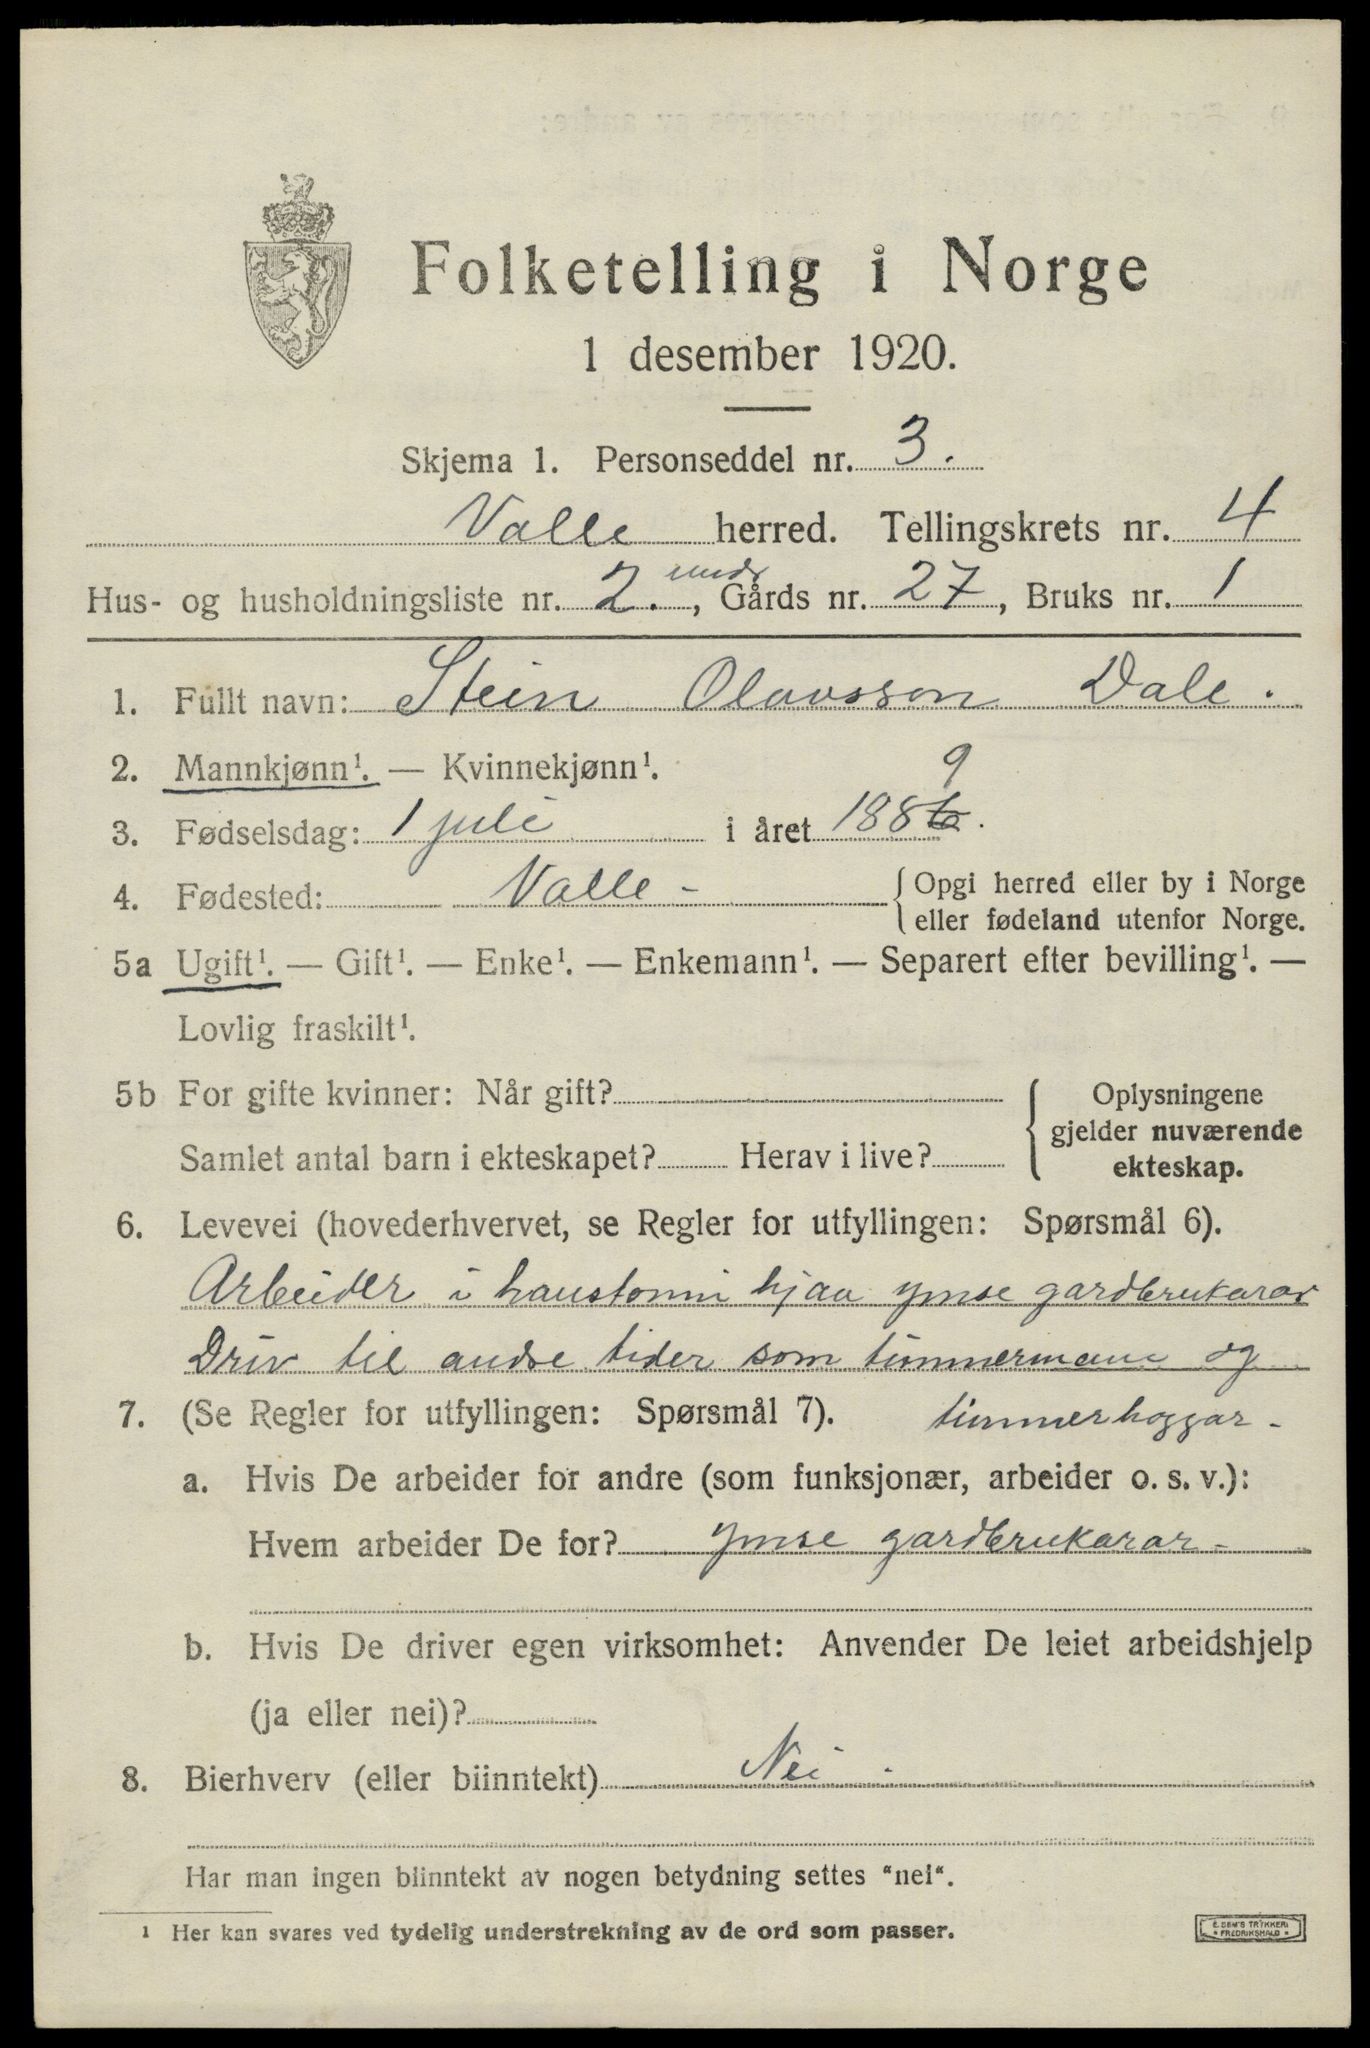 Folketelling i Norge
1 desember 1920.
Skjema 1. Personseddel nr. 3.
Valle herred. Tellingskrets nr. 4
Hus- og husholdningsliste nr. 2. undr, Gårds nr. 27, Bruks nr. 1
1. Fullt navn: Stein Olavsson Dale.
2. Mannkjønn¹. — Kvinnekjønn¹.
9
3. Fødselsdag: 1 juli i året 1886.
4. Fødested: Valle - { Opgi herred eller by i Norge
eller fødeland utenfor Norge.
5a Ugift¹. — Gift¹. — Enke¹. — Enkemann¹. — Separert efter bevilling¹. —
Lovlig fraskilt¹.
5b For gifte kvinner: Når gift? { Oplysningene
gjelder nuværende
Samlet antal barn i ekteskapet? Herav i live? ekteskap.
6. Levevei (hovederhvervet, se Regler for utfyllingen: Spørsmål 6).
Arbeider i haustonni hjaa ymse gardbrukarar
Driv til andre tider som timmermann og
7. (Se Regler for utfyllingen: Spørsmål 7). timmerhoggar -
a. Hvis De arbeider for andre (som funksjonær, arbeider o. s. v.):
Hvem arbeider De for? ymse gardbrukarar -
b. Hvis De driver egen virksomhet: Anvender De leiet arbeidshjelp
(ja eller nei)?
8. Bierhverv (eller biinntekt) Nei -
Har man ingen biinntekt av nogen betydning settes "nei".
¹ Her kan svares ved tydelig understrekning av de ord som passer.
E. SEM'S TRYKKERI
* FREDRIKSHALD *